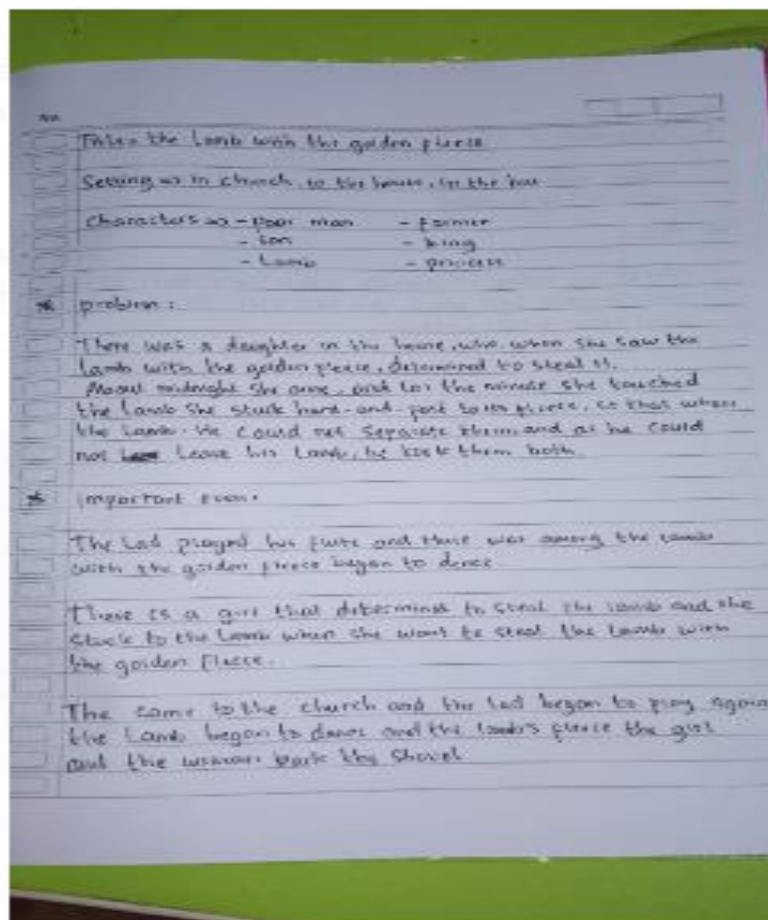 No.
Title = the Lamb with the golden fleece
Setting => in church, to the house, in the
Characters => - poor man - farmer
- son - king
- Lamb - princess
* problem :
There was a daughter in the house, who, when she saw the
lamb with the golden fleece, determined to steal it.
About midnight she arose, and the minute she touched
the lamb she stuck hard-and-fast to its fleece, so that when
the lamb. He could not separate them, and as he could
not leave his lamb, he took them both.
* important even.
The Lad played his flute and there was among the
with the golden fleece began to dance
There is a girl that determined to steal the lamb and she
stuck to the lamb when she want to steal the lamb with
the golden fleece.
The came to the church and the lad began to play again
the Lamb began to dance and the lamb's fleece the girl
and the woman back the shovel